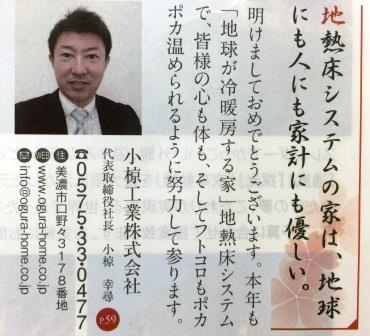 地熱床システムの家は、地球
にも人にも家計にも優しい。
明けましておめでとうございます。本年も
「地球が冷暖房する家」地熱床システム
で、皆様の心も体も、そしてフトコロもポカ
ポカ温められるように努力して参ります。
小椋工業株式会社
代表取締役社長 小椋 幸尋
P.59
☎0575・33・0477
住 美濃市口野々3178番地
WEB www.ogura-home.co.jp
✉ info@ogura-home.co.jp